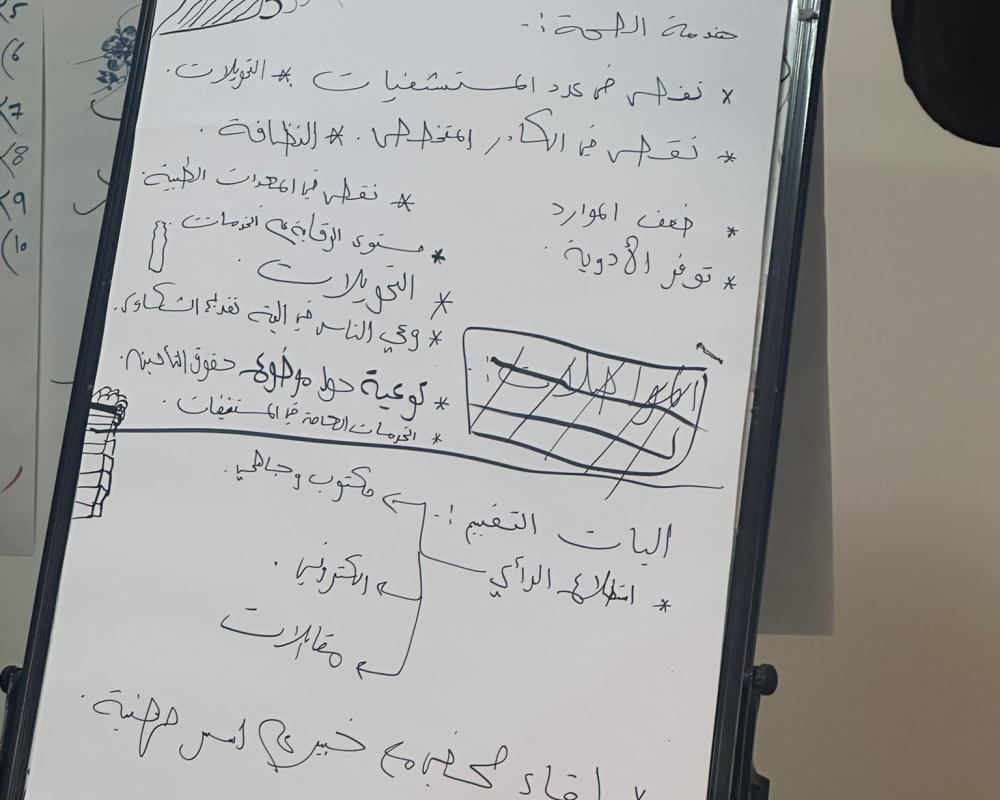 خدمة الصحة :-
× نقص في عدد المستشفيات * التحويلات .
* نقص في الكادر المتخصص . * النظافة .
* ضعف الموارد
* توفر الأدوية .
* نقص في المعدات الطبية .
* مستوى الرقابة على الخدمات
* التحويلات .
* وعي الناس في الية تقديم الشكاوى .
* توعية حول موضوع حقوق التأمين .
* الخدمات العامة في المستشفيات .
المواصلات :
اليات التقييم :-
* استطلاع الرأي
مكتوب وجاهي .
الكتروني .
مقابلات
لقاء صحفي مع خبير على اسس مهنية .
5
(6
7
8
9
(10